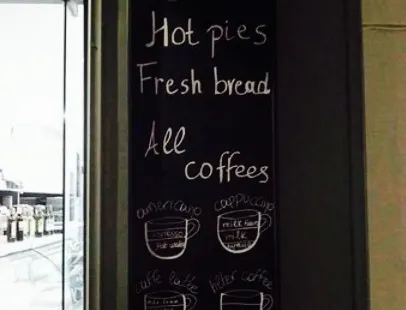 Hot pies
Fresh bread
All
coffees
americano
cappuccino
espresso
hot water
milk foam
milk
caffè latte
filter coffee
milk foam